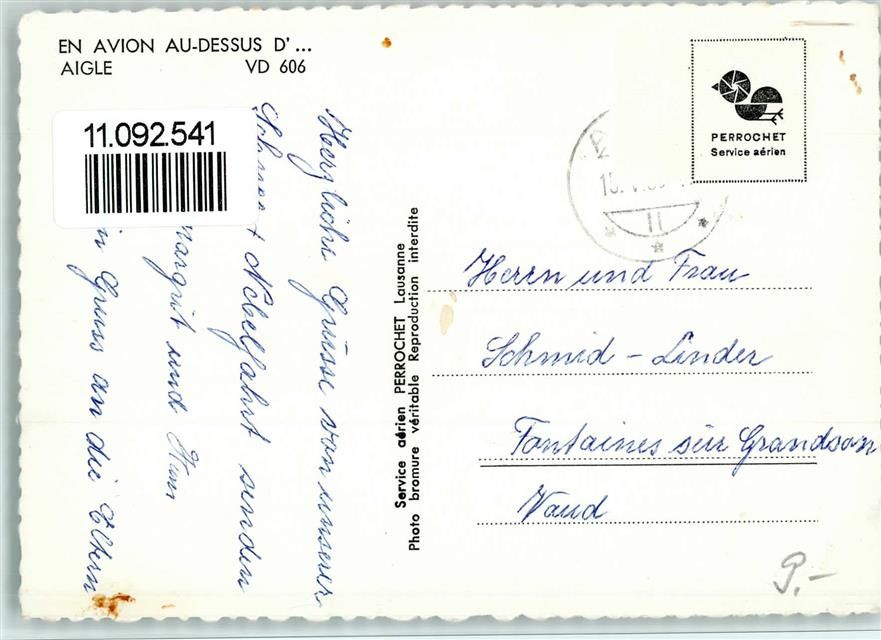 EN AVION AU-DESSUS D'...
AIGLE VD 606
11.092.541
Herzliche Grüsse von unserer
Schnee + Nebelfahrt senden
und
Gruss an die Eltern
Service aérien PERROCHET Lausanne
Photo bromure véritable Reproduction interdite
PERROCHET
Service aérien
Herrn und Frau
Schmid - Linder
Fontaines sur Grandson
Vaud
9.-